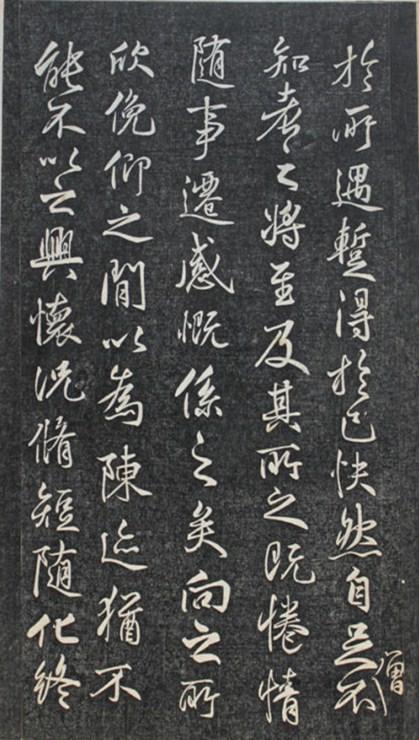 於所遇蹔得於己快然自足不
僧
知老之將至及其所之既惓情
隨事遷感慨係之矣向之所
欣俛仰之間以為陳迹猶不
能不以之興懷況脩短隨化終